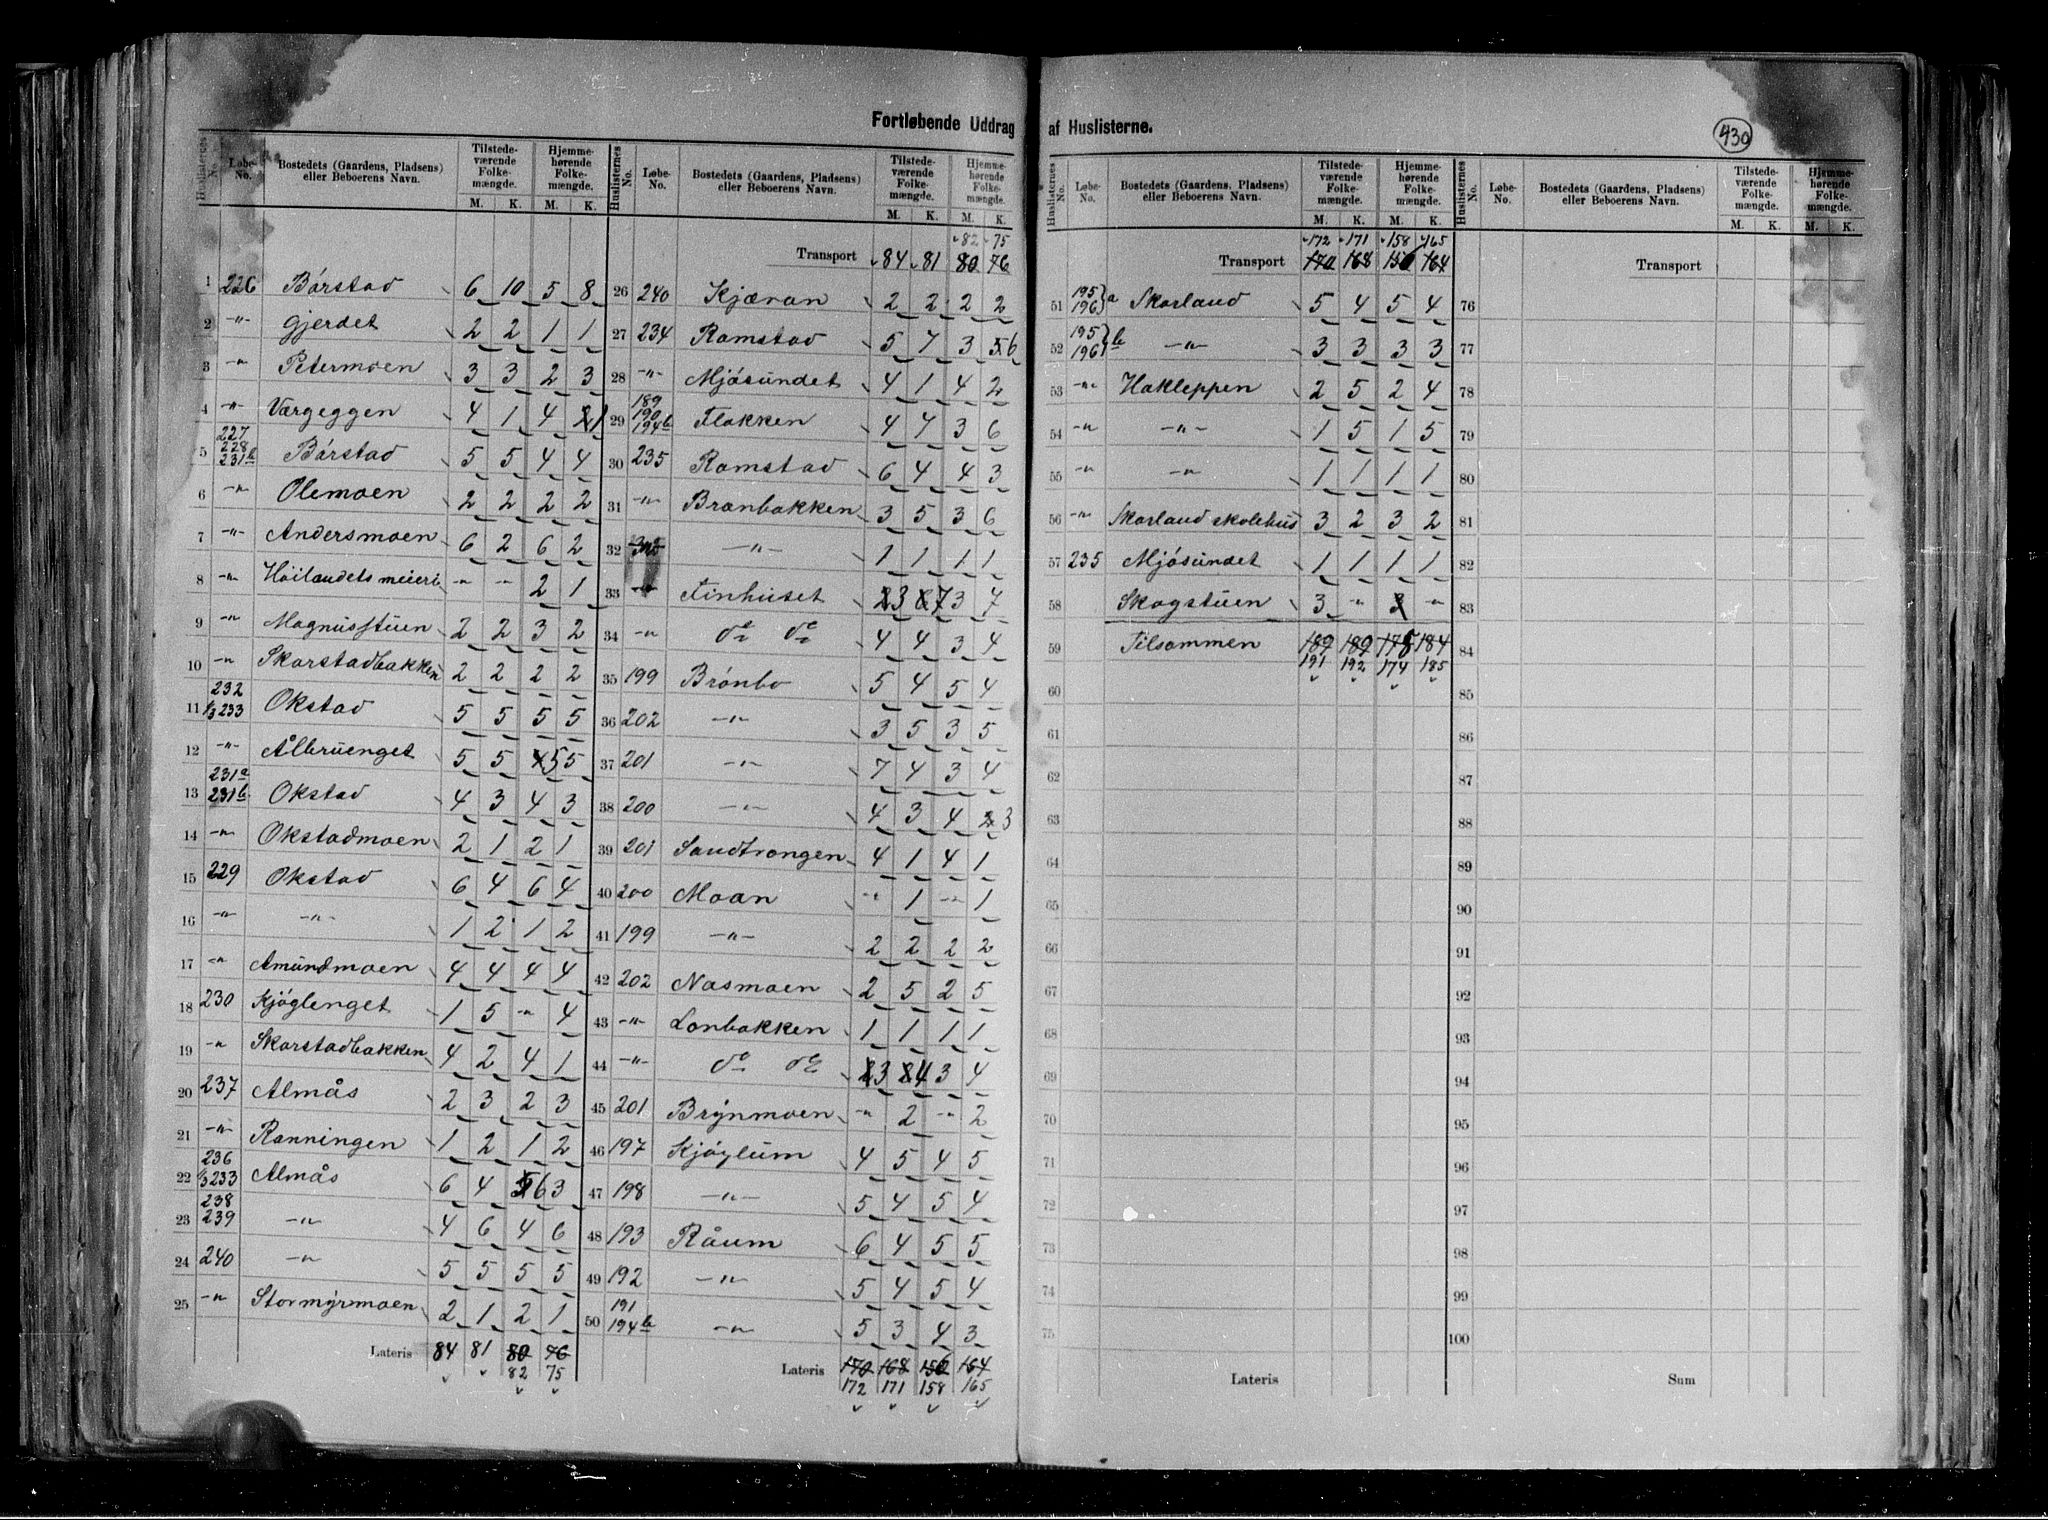 Fortløbende Uddrag af Huslisterne.
430
Huslisternes No. Løbe-No. Bostedets (Gaardens, Pladsens) eller Beboerens Navn. Tilstedeværende Folkemængde. M. K. Hjemmehørende Folkemængde. M. K.
1 226 Børstad 6 10 5 8
2 -"- Gjerdet 2 2 1 1
3 -"- Petermoen 3 3 2 3
4 -"- Værgeggen 4 1 4 1
5 227 228 231b Børstad 5 5 4 4
6 -"- Olemoen 2 2 2 2
7 -"- Andersmoen 6 2 6 2
8 -"- Høilandets meieri -"- -"- 2 1
9 -"- Magnusstuen 2 2 3 2
10 -"- Skarstadbakken 2 2 2 2
11 232 1/3 233 Okstad 5 5 5 5
12 -"- Ålbruenget 5 5 4 5 5
13 231a 231b Okstad 4 3 4 3
14 -"- Okstadmoen 2 1 2 1
15 229 Okstad 6 4 6 4
16 -"- -"- 1 2 1 2
17 -"- Amundmoen 4 4 4 4
18 230 Kjøglenget 1 5 -"- 4
19 -"- Skarstadbakken 4 2 4 1
20 237 Almås 2 3 2 3
21 -"- Ranningen 1 2 1 2
22 236 1/3 233 Almås 6 4 5 6 3
23 238 239 -"- 4 6 4 6
24 240 -"- 5 5 5 5
25 -"- Stormyrmoen 2 1 2 1
Lateris 84 81 80 76
82 75
Huslisternes No. Løbe-No. Bostedets (Gaardens, Pladsens) eller Beboerens Navn. Tilstedeværende Folkemængde. M. K. Hjemmehørende Folkemængde. M. K.
82 75
Transport 84 81 80 76
26 240 Kjæran 2 2 2 2
27 234 Ramstad 5 7 3 5 6
28 -"- Mjøsundet 4 1 4 2
29 189 190 194b Flakken 4 7 3 6
30 235 Ramstad 6 4 4 3
31 -"- Branbakken 3 5 3 6
32 -"- 1 1 1 1
33 -"- Finhuset 2 3 8 7 3 7
34 -"- do do 4 4 3 4
35 199 Brønbo 5 4 5 4
36 202 -"- 3 5 3 5
37 201 -"- 7 4 3 4
38 200 -"- 4 3 4 2 3
39 201 Sandtrangen 4 1 4 1
40 200 Moan -"- 1 -"- 1
41 199 -"- 2 2 2 2
42 202 Nasmoen 2 5 2 5
43 -"- Lonbakken 1 1 1 1
44 -"- do do 3 4 3 4
45 201 Brynmoen -"- 2 -"- 2
46 197 Kjøglum 4 5 4 5
47 198 -"- 5 4 5 4
48 193 Råum 6 4 5 5
49 192 -"- 5 4 5 4
50 191 194b -"- 5 3 4 3
Lateris 170 168 156 164
172 171 158 165
Huslisternes No. Løbe-No. Bostedets (Gaardens, Pladsens) eller Beboerens Navn. Tilstedeværende Folkemængde. M. K. Hjemmehørende Folkemængde. M. K.
172 171 158 165
Transport 170 168 156 164
51 195 196 a Skarland 5 4 5 4
52 195 196 b -"- 3 3 3 3
53 -"- Hakleppen 2 5 2 4
54 -"- -"- 1 5 1 5
55 -"- -"- 1 1 1 1
56 -"- Skarland skolehus 3 2 3 2
57 235 Mjøsundet 1 1 1 1
58 Skogstuen 3 -"- 3 -"-
59 Tilsammen 189 189 175 184
191 192 174 185
60
61
62
63
64
65
66
67
68
69
70
71
72
73
74
75
Lateris
Huslisternes No. Løbe-No. Bostedets (Gaardens, Pladsens) eller Beboerens Navn. Tilstedeværende Folkemængde. M. K. Hjemmehørende Folkemængde. M. K.
Transport
76
77
78
79
80
81
82
83
84
85
86
87
88
89
90
91
92
93
94
95
96
97
98
99
100
Sum